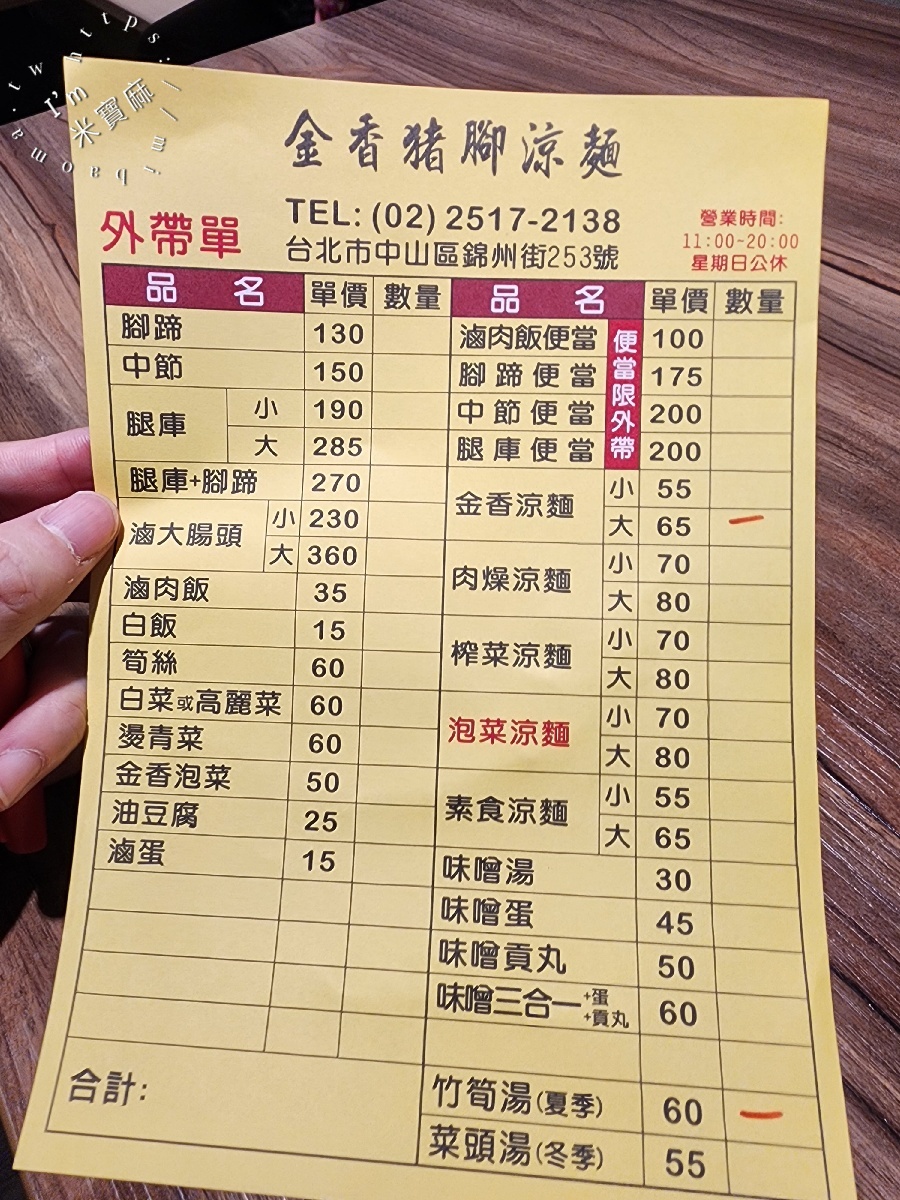 https://
I'm
米寶麻
mibaoma.tw
金香豬腳涼麵
外帶單
TEL: (02) 2517-2138
台北市中山區錦州街253號
營業時間:
11:00~20:00
星期日公休
品 名 單價 數量
腳蹄 130
中節 150
腿庫 小 190
大 285
腿庫+腳蹄 270
滷大腸頭 小 230
大 360
滷肉飯 35
白飯 15
筍絲 60
白菜或高麗菜 60
燙青菜 60
金香泡菜 50
油豆腐 25
滷蛋 15
合計:
品 名 單價 數量
滷肉飯便當 100
腳蹄便當 175
中節便當 200
腿庫便當 200
便當限外帶
金香涼麵 小 55
大 65 一
肉燥涼麵 小 70
大 80
榨菜涼麵 小 70
大 80
泡菜涼麵 小 70
大 80
素食涼麵 小 55
大 65
味噌湯 30
味噌蛋 45
味噌貢丸 50
味噌三合一+蛋+貢丸 60
竹筍湯(夏季) 60 一
菜頭湯(冬季) 55